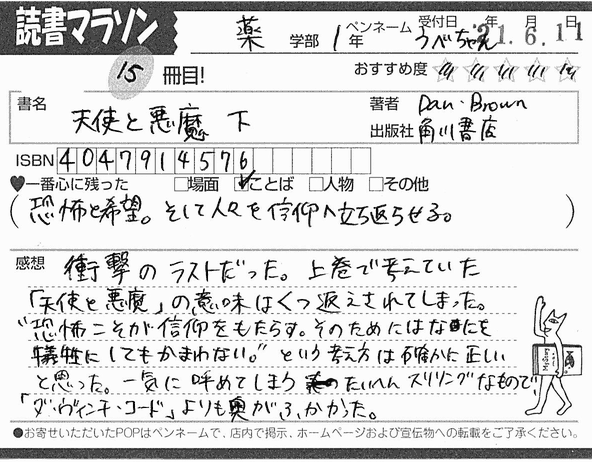 読書マラソン
薬 学部 1年 ペンネーム うべちゃん 受付日 '21.6.11 年 月 日
15 冊目! おすすめ度
書名 天使と悪魔 下 著者 Dan・Brown
出版社 角川書店
ISBN 4047914576
♥一番心に残った □場面 ☑ことば □人物 □その他
(恐怖と希望。そして人々を信仰へ立ち返らせる。)
感想 衝撃のラストだった。上巻で考えていた
「天使と悪魔」の意味はくつ返えされてしまった。
"恐怖こそが信仰をもたらす。そのためにはなにを
犠牲にしてもかまわない。"という考え方は確かに正しい
と思った。一気に呼めてしまう たいへんスリリングなもので
「ダ・ヴィンチ・コード」よりも奥がふかかった。
●お寄せいただいたPOPはペンネームで、店内で掲示、ホームページおよび宣伝物への転載をご了承ください。